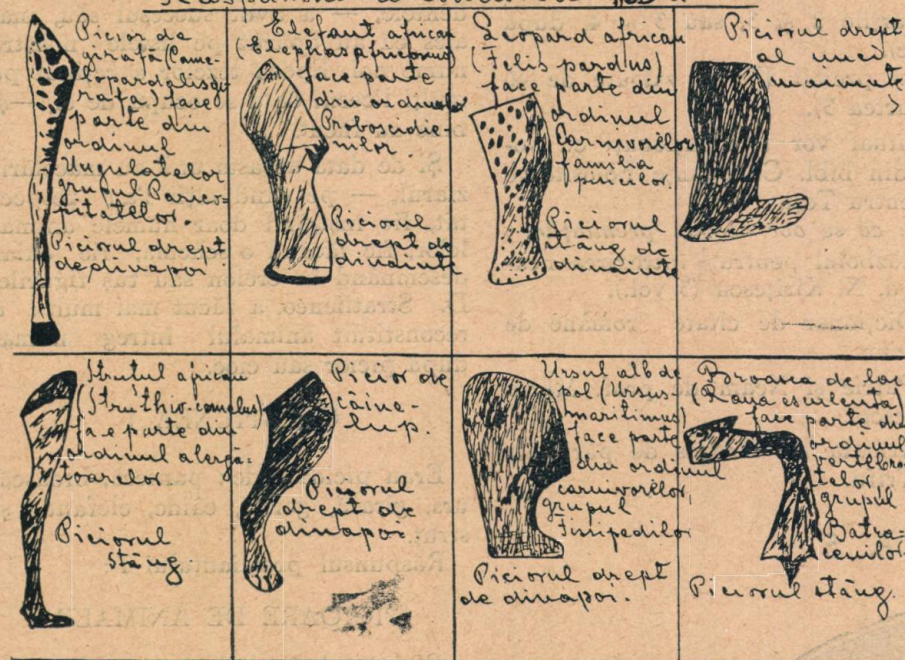 Picior de
girafă (Came-
lopardalis gi-
rafa) face
parte din
ordinul
Ungulatelor
grupul Parico-
pitatelor.
Piciorul drept
de dinapoi
Elefant african
(Elephas africanus)
face parte
din ordinul
Proboscidie-
nilor
Piciorul
drept de
dinainte
Leopard african
(Felis pardus)
face parte din
ordinul
Carnivorelor
familia
pisicilor.
Piciorul
stâng de
dinainte
Piciorul drept
al unei
maimuțe
Strutul african
(Struthio-camelus)
fa e parte din
ordinul alergă-
toarelor
Piciorul
stâng
Picior de
câine-
lup.
Piciorul
drept de
dinapoi
Ursul alb de
pol (Ursus-
maritimus)
face parte
din ordinul
carnivorelor,
grupul
Piciorul drept
de dinapoi.
Broasca de lac
(Rana esculenta)
face parte din
ordinul
vertebra-
telor
grupul
Batra-
cenilor
Piciorul stâng.